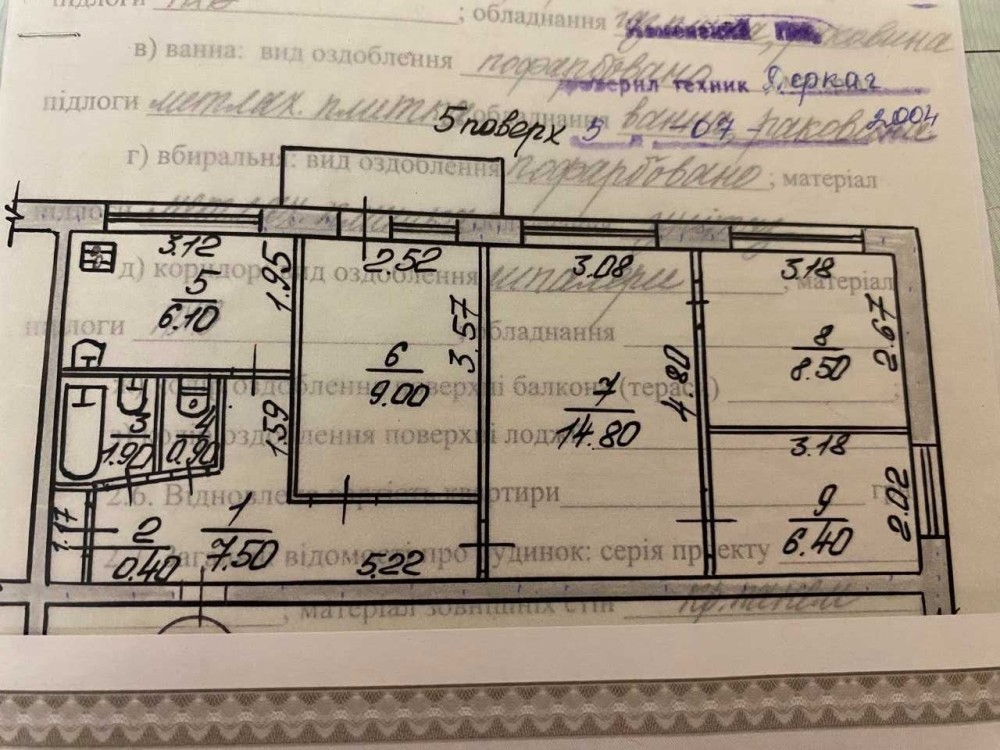 підлоги ; обладнання раковина
в) ванна: вид оздоблення пофарбовано
Доверил техник Деркач
підлоги метлах. плитка обладнання ванна, раковина
5 поверх 5 07 - 2004
г) вбиральня: вид оздоблення пофарбовано ; матеріал
підлоги
3.12 1.95 2.52 3.08 3.18
д) коридор: вид оздоблення шпалери , матеріал
5
6.10
підлоги , обладнання
3.57 2.67
6
9.00
8
8.50
4.80
оздоблення поверхні балкону (тераси)
7
14.80
1.59
3
1.90
4
0.90
оздоблення поверхні лоджії
3.18
2.6. Відновлена вартість квартири
2.02
9
6.40
1.17
2
0.40
1
7.50
відомості про будинок: серія проекту
5.22
, матеріал зовнішніх стін кр. панелі